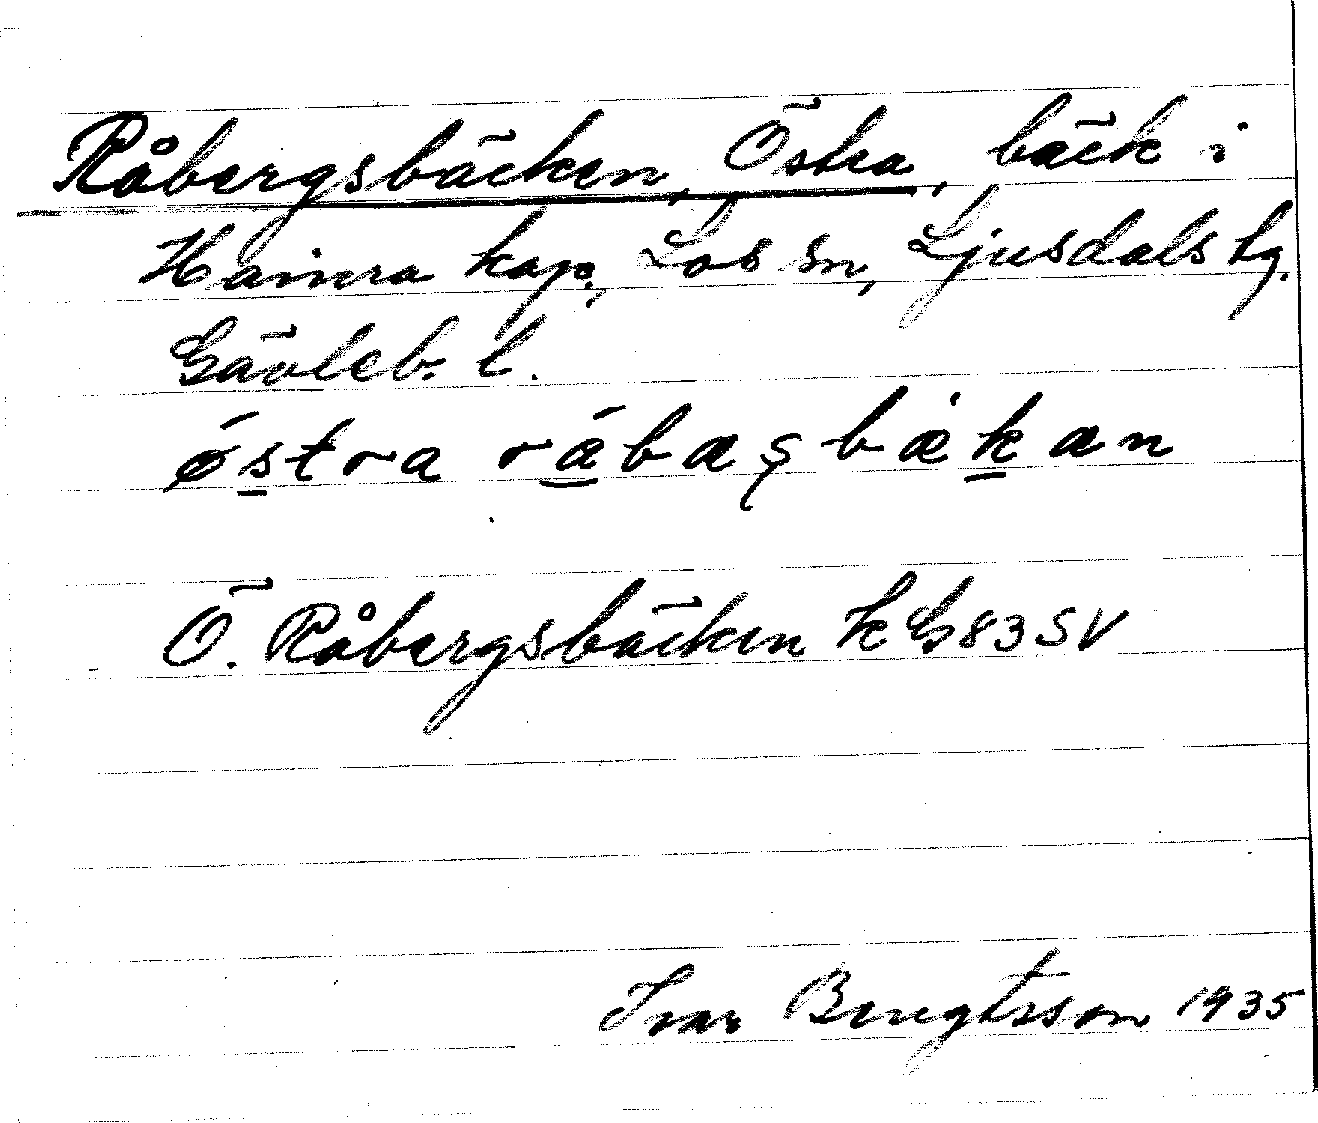 Råbergsbäcken, Östra, bäck i
Hamra kap., Los sn, Ljusdals tg.
Gävleb. l.
östra råbaʂbækan
Ö. Råbergsbäcken K G83SV
Ivar Bengtsson 1935